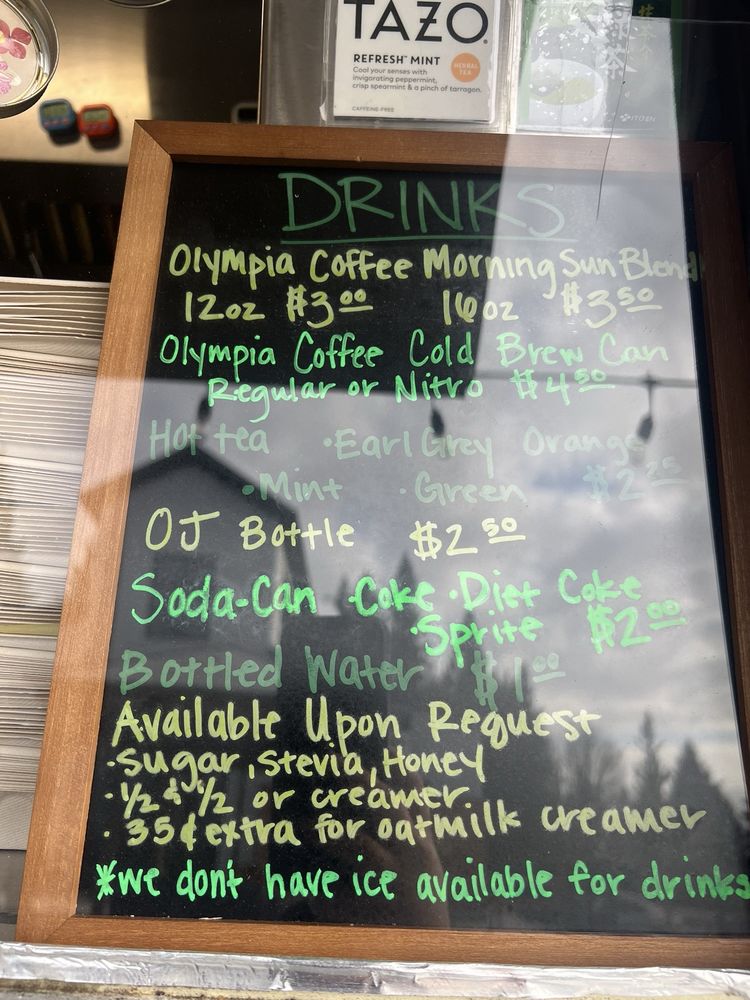 TAZO
REFRESH™ MINT
HERBAL TEA
Cool your senses with
invigorating peppermint,
crisp spearmint & a pinch of tarragon.
CAFFEINE-FREE
ITO EN
DRINKS
Olympia Coffee Morning Sun Blend
12oz $3.00 16oz $3.50
Olympia Coffee Cold Brew Can
Regular or Nitro $4.50
Hot tea •Earl Grey Orange
•Mint •Green $2.25
OJ Bottle $2.50
Soda-Can •Coke •Diet Coke
•Sprite $2.00
Bottled Water $1.00
Available Upon Request
•Sugar, Stevia, Honey
•½ & ½ or creamer
•35¢ extra for oatmilk creamer
*we don't have ice available for drinks